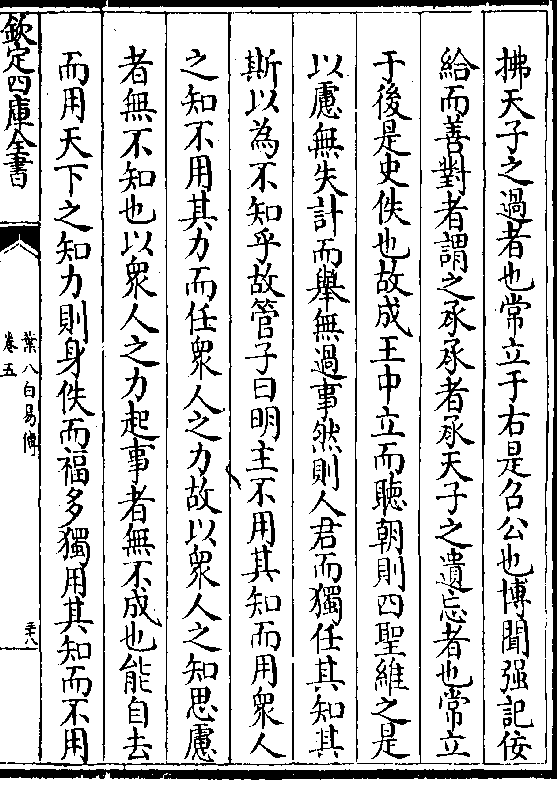 拂天子之過者也常立于右是召公也博聞强記佞
給而善對者謂之承承者承天子之遺忘者也常立
于後是史佚也故成王中立而聽朝則四聖維之是
以慮無失計而舉無過事然則人君而獨任其知其
斯以為不知乎故管子曰明主不用其知而用衆人
之知不用其力而任衆人之力故以衆人之知思慮
者無不知也以衆人之力起事者無不成也能自去
而用天下之知力則身佚而福多獨用其知而不用
欽定四庫全書
葉八白易傳
卷五